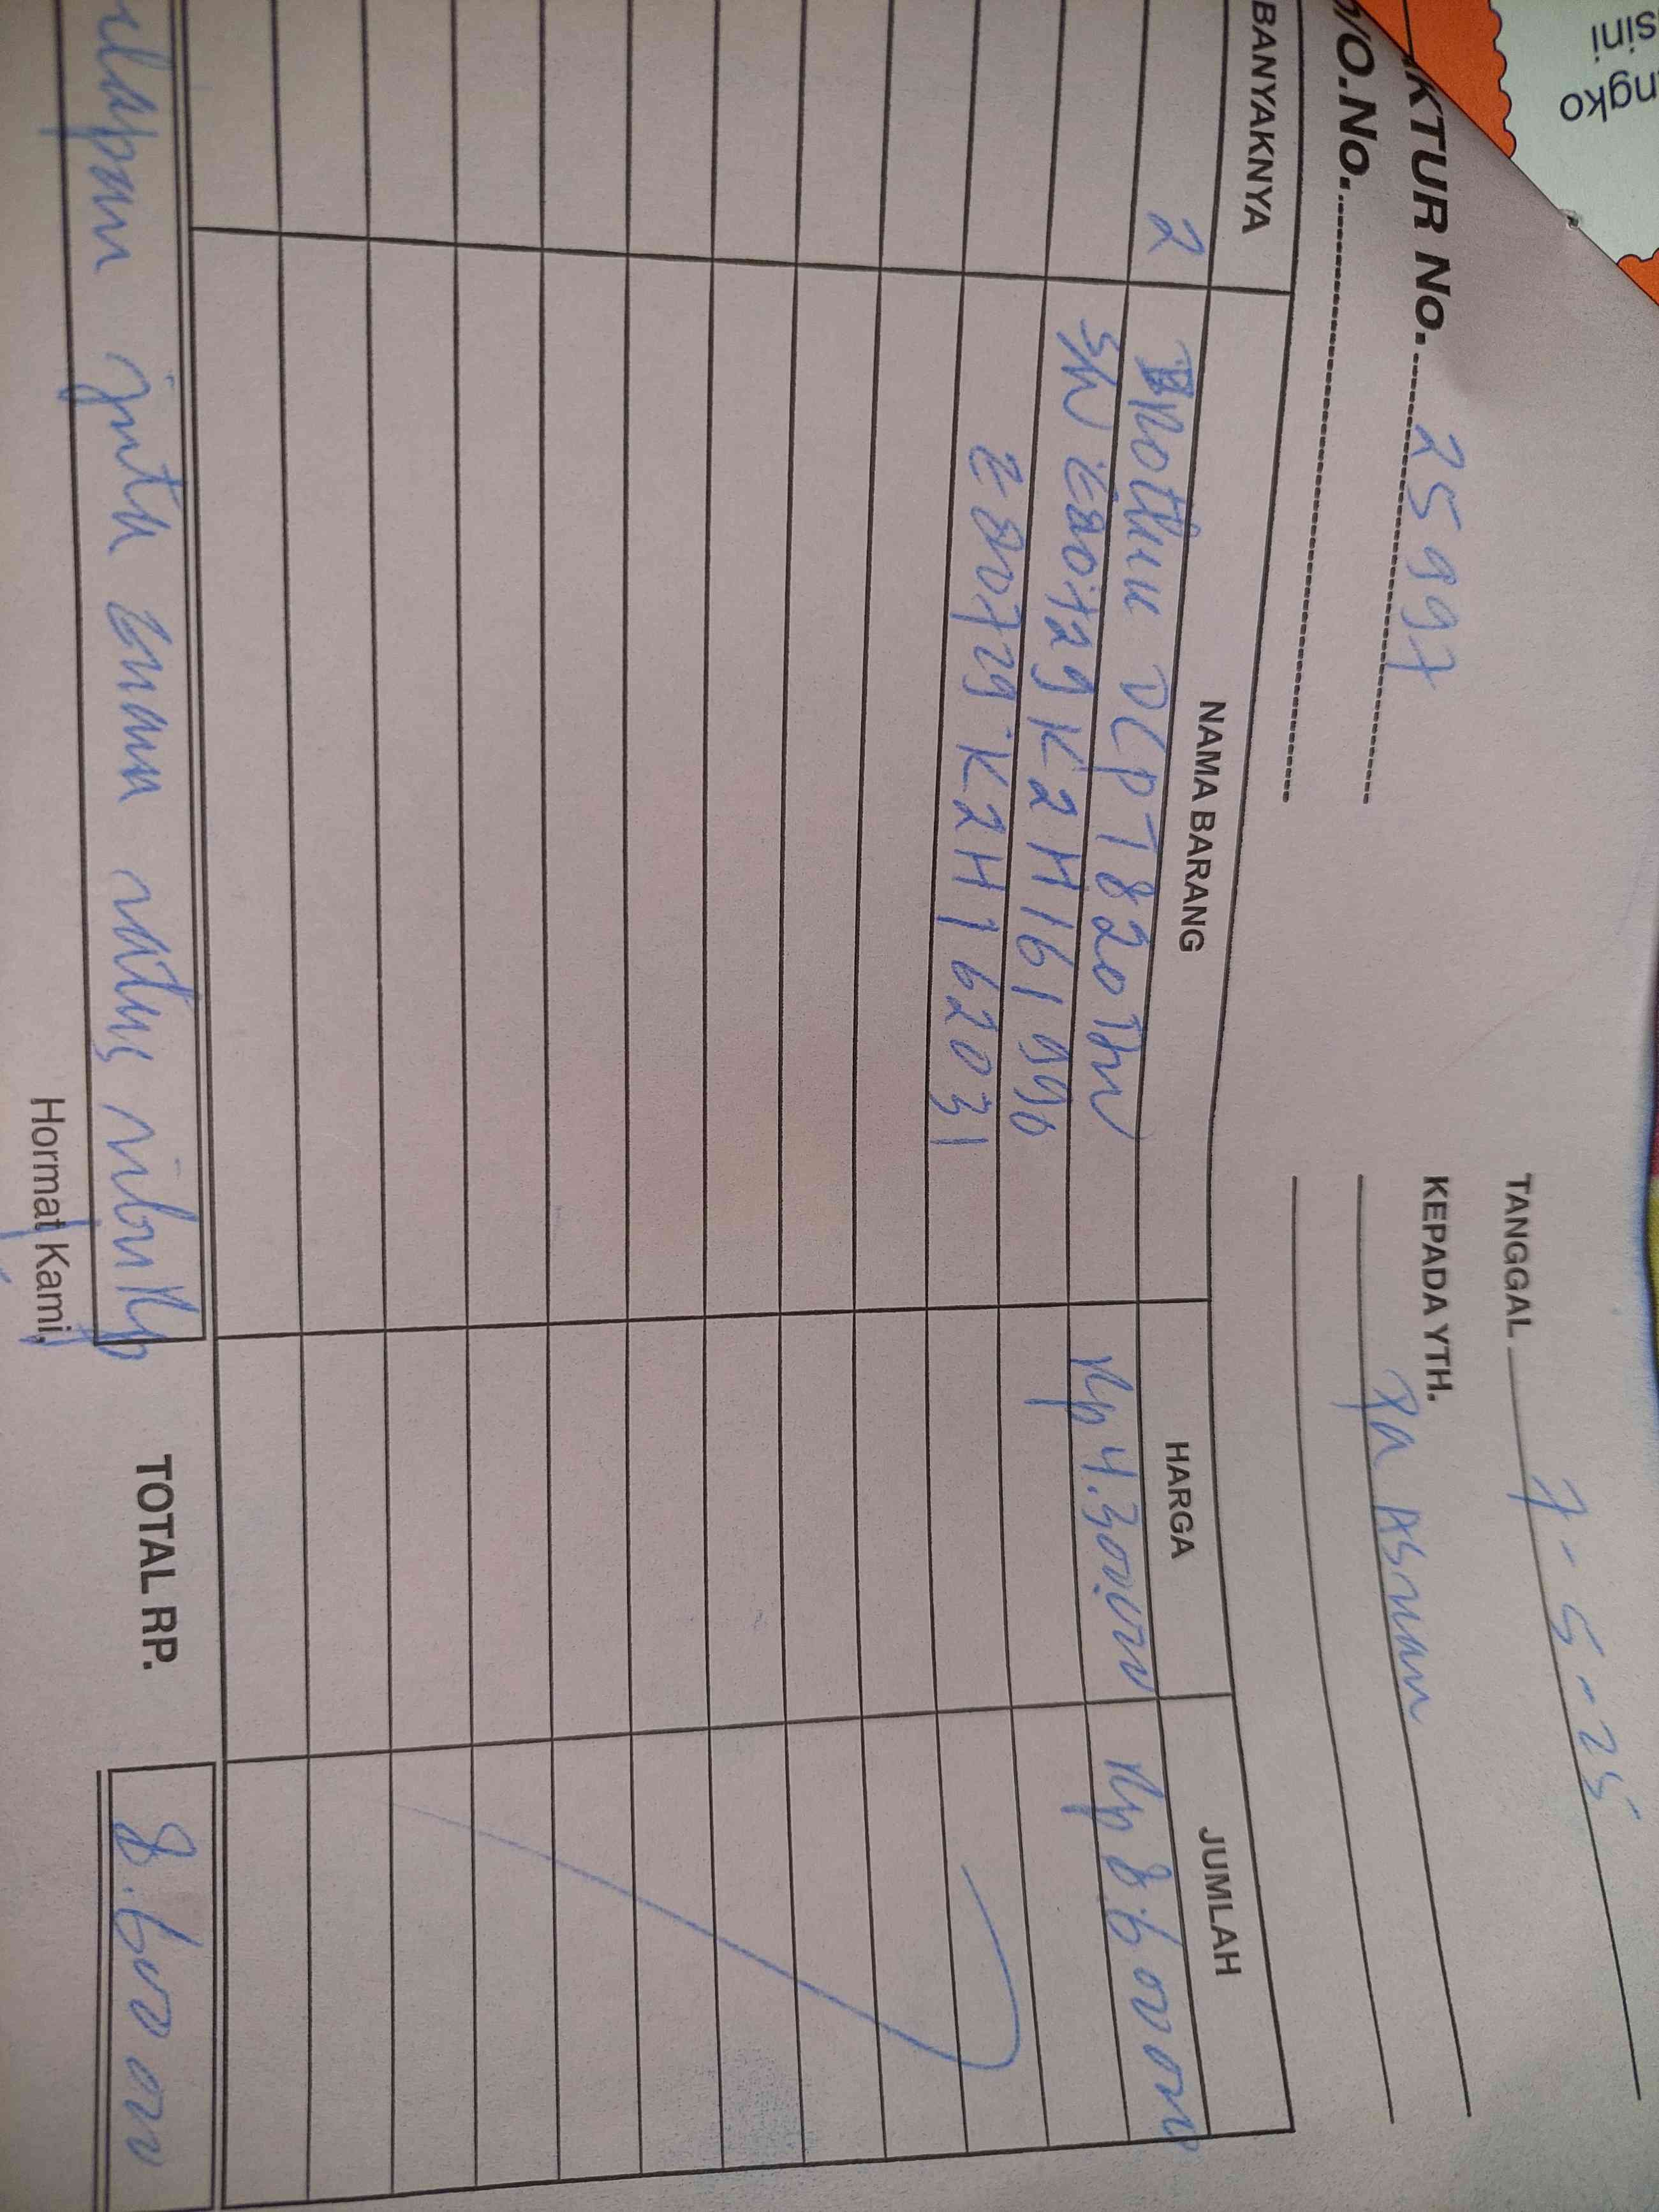 ngko
sini
KTUR No. 25997
O.No.
TANGGAL 7-5-25
KEPADA YTH.
Pa Asnan
BANYAKNYA NAMA BARANG HARGA JUMLAH
2 Brother DCP T820 DW Rp 4.300.000 Rp 8.600.000
SN E80729 K2H161990
E80729 K2H162031
delapan juta enam ratus ribu Rp TOTAL RP. 8.600.000
Hormat Kami,